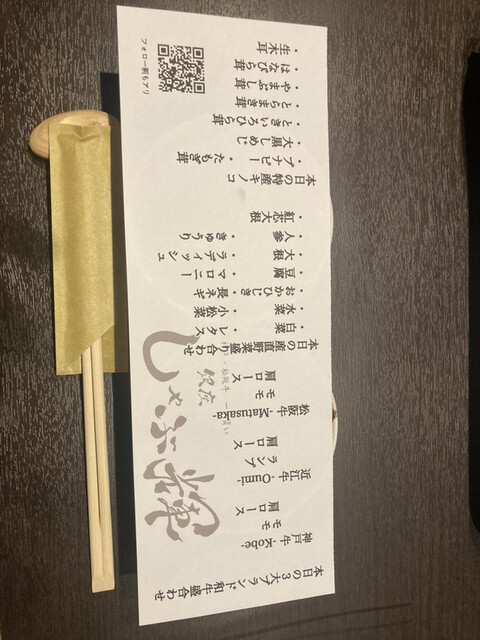 本日の3大ブランド和牛盛合わせ
神戸牛 -Kobe-
モモ
肩ロース
近江牛 -Oumi-
ランプ
肩ロース
松阪牛 -Matusaka-
モモ
肩ロース
本日の産直野菜盛り合わせ
・白菜 ・レタス
・水菜 ・小松菜
・おかひじき ・長ネギ
・豆腐 ・マロニー
・大根 ・ラディッシュ
・人参 ・きゅうり
・紅芯大根
本日の特産キノコ
・ブナピー ・たもぎ茸
・大黒しめじ
・ときいろひら茸
・とらまき茸
・やまぶし茸
・はなびら茸
・生木耳
フォロー割もアリ
銀座
しゃぶ輝